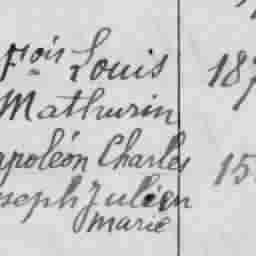 fçois Louis 187
Mathurin
apoléon Charles 15
seph Julien
marie